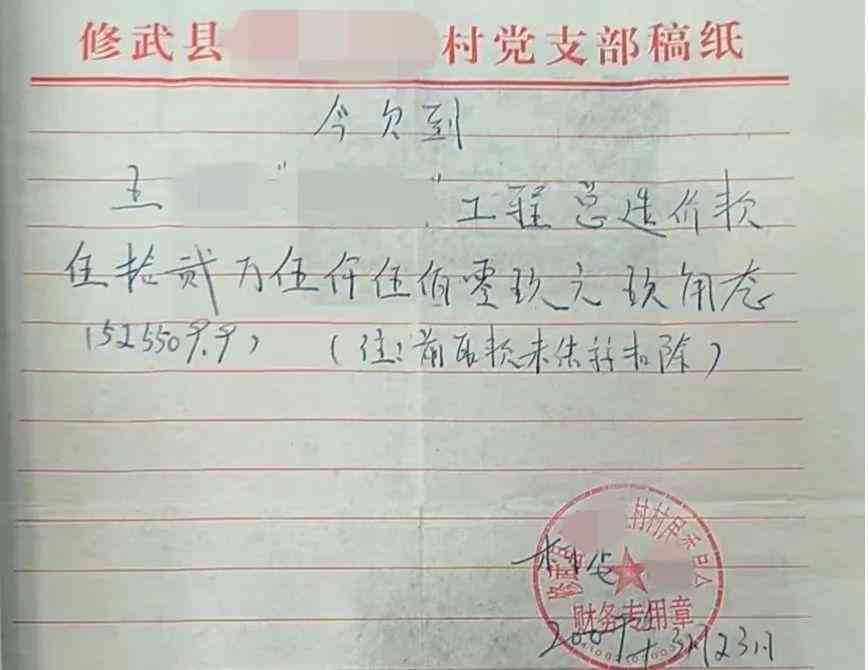 修武县 村党支部稿纸
今欠到
王 " " 工程总造价款
伍拾贰万伍仟伍佰零玖元玖角整
(525509.9) (注:前面款未结转扣除)
村村民委员会
财务专用章
2009年3月23日